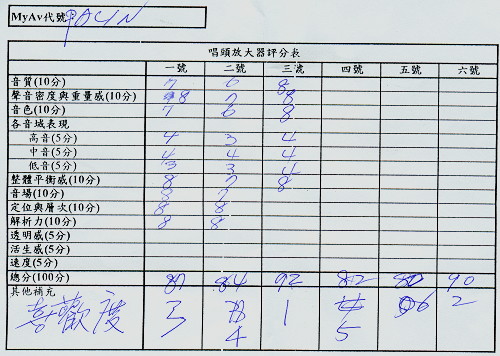 MyAv代號
唱頭放大器評分表
一號 二號 三號 四號 五號 六號
音質(10分) 7 6 8
聲音密度與重量感(10分) 8 7 8
音色(10分) 7 6 8
各音域表現
高音(5分) 4 3 4
中音(5分) 4 4 4
低音(5分) 3 3 4
整體平衡感(10分) 8 7 8
音場(10分) 8 7
定位與層次(10分) 8 8
解析力(10分) 8 8
透明感(5分)
活生感(5分)
速度(5分)
總分(100分) 84 92 82 80 90
其他補充
喜歡度 3 4 1 5 6 2